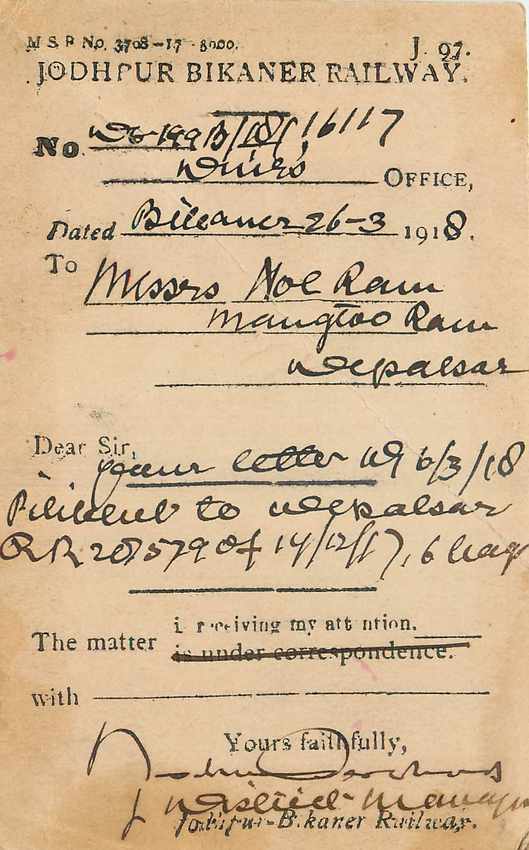 M S P No. 3708-17-8000. J. 97.
JODHPUR BIKANER RAILWAY.
No. 199B/18/16117
OFFICE,
Dated Bikaner 26-3 1918.
To Messrs Nol Ram
Mangtoo Ram
Depalsar
Dear Sir,
your letter of 6/3/18
to Depalsar
RR 287579 of 14/12/17, 6 bags
The matter is receiving my attention.
is under correspondence.
with
Yours faithfully,
District Manager
Jodhpur-Bikaner Railway.